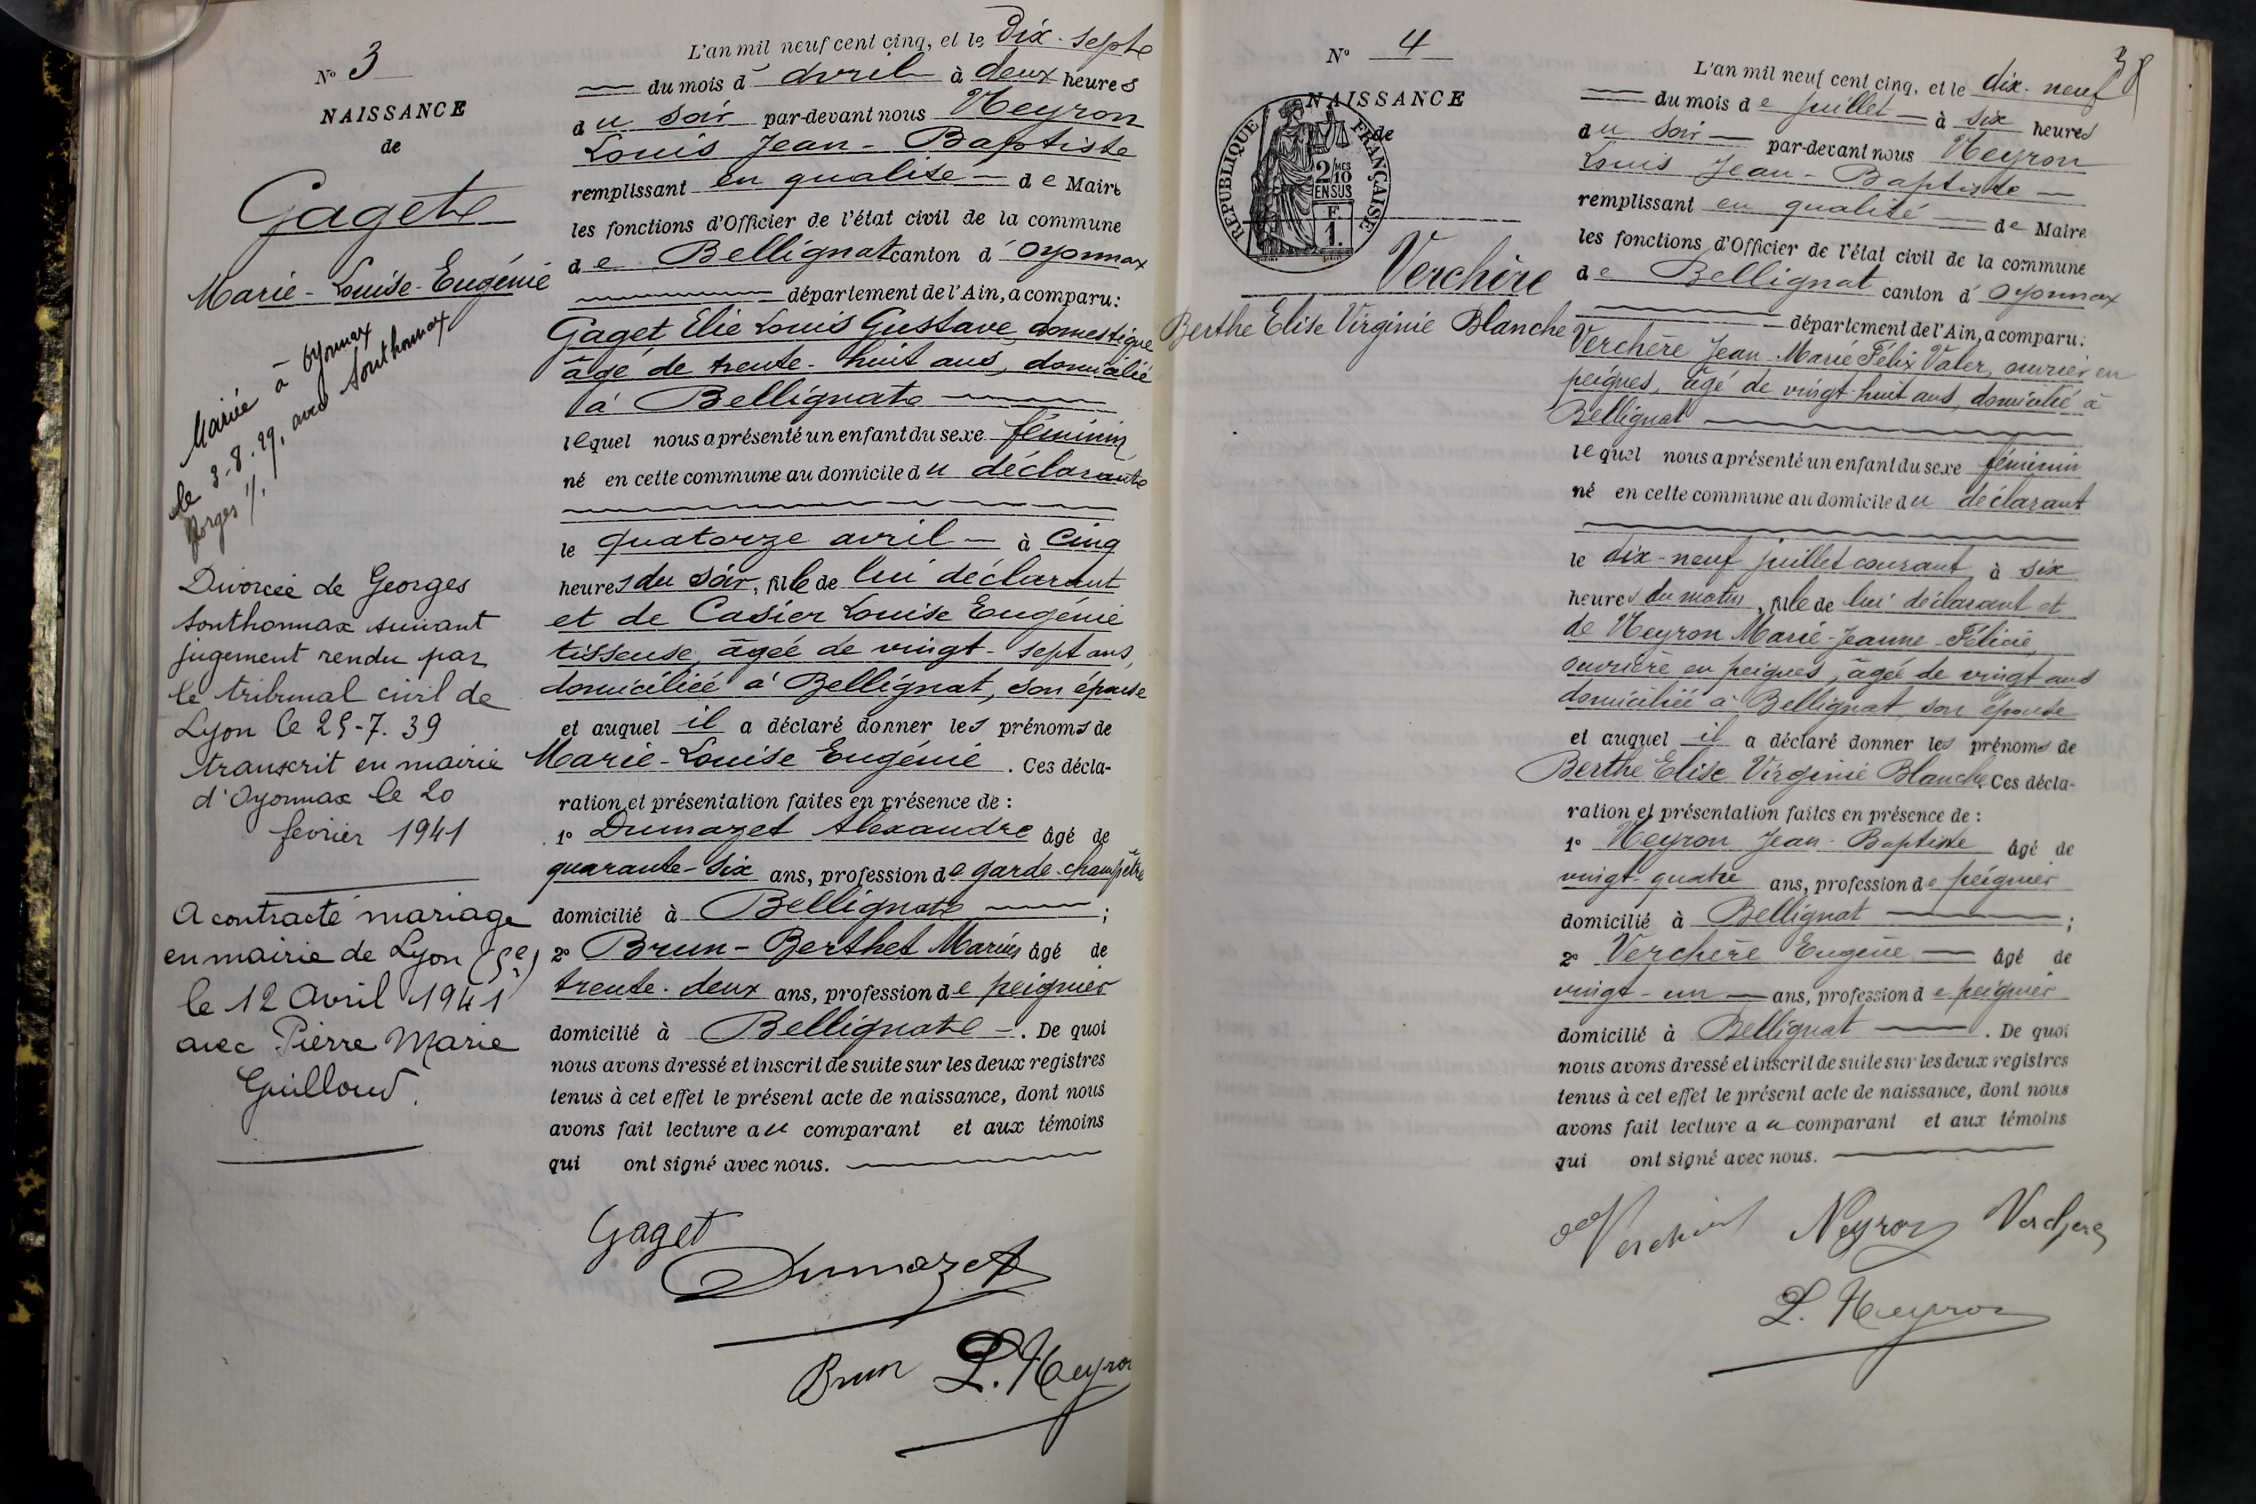 N° 3
NAISSANCE
de
Gaget
Marie-Louise-Eugénie
Mariée à Oyonnax
le 3-8.29, avec Sonthonnax
Georges
Divorcée de Georges
Sonthonnax suivant
jugement rendu par
le tribunal civil de
Lyon le 25-7.39
transcrit en mairie
d'Oyonnax le 20
février 1941
A contracté mariage
en mairie de Lyon (5e)
le 12 Avril 1941
avec Pierre Marie
Guilloud.
L'an mil neuf cent cinq, et le Dix-sept
du mois d'avril à deux heures
du soir par-devant nous Neyron
Louis Jean-Baptiste
remplissant en qualité de Maire
les fonctions d'Officier de l'état civil de la commune
de Bellignat canton d'Oyonnax
département de l'Ain, a comparu:
Gaget Elie Louis Gustave, domestique
âgé de trente-huit ans, domicilié
à Bellignat
lequel nous a présenté un enfant du sexe féminin
né en cette commune au domicile du déclarant
le quatorze avril à cinq
heures du soir, fille de lui déclarant
et de Casier Louise Eugénie
tisseuse, âgée de vingt-sept ans,
domiciliée à Bellignat, son épouse
et auquel il a déclaré donner les prénoms de
Marie-Louise Eugénie. Ces décla-
ration et présentation faites en présence de:
1° Dumazet Alexandre âgé de
quarante-six ans, profession de garde-champêtre
domicilié à Bellignat;
2° Brun-Berthet Marius âgé de
trente-deux ans, profession de peignier
domicilié à Bellignat. De quoi
nous avons dressé et inscrit de suite sur les deux registres
tenus à cet effet le présent acte de naissance, dont nous
avons fait lecture au comparant et aux témoins
qui ont signé avec nous.
Gaget
Dumazet
Brun L. Neyron
38
N° 4
NAISSANCE
de
REPUBLIQUE FRANÇAISE
2/10 MES
EN SUS
F
1.
Verchère
Berthe Elise Virginie Blanche
L'an mil neuf cent cinq, et le dix-neuf
du mois de juillet à six heures
du soir par-devant nous Neyron
Louis Jean-Baptiste
remplissant en qualité de Maire
les fonctions d'Officier de l'état civil de la commune
de Bellignat canton d'Oyonnax
département de l'Ain, a comparu:
Verchère Jean-Marie Félix Valer, ouvrier en
peignes, âgé de vingt-huit ans, domicilié à
Bellignat
lequel nous a présenté un enfant du sexe féminin
né en cette commune au domicile du déclarant
le dix-neuf juillet courant à six
heures du matin, fille de lui déclarant et
de Neyron Marie-Jeanne-Félicie,
ouvrière en peignes, âgée de vingt ans
domiciliée à Bellignat, son épouse
et auquel il a déclaré donner les prénoms de
Berthe Elise Virginie Blanche. Ces décla-
ration et présentation faites en présence de:
1° Neyron Jean-Baptiste âgé de
vingt-quatre ans, profession de peignier
domicilié à Bellignat;
2° Verchère Eugène âgé de
vingt-un ans, profession de peignier
domicilié à Bellignat. De quoi
nous avons dressé et inscrit de suite sur les deux registres
tenus à cet effet le présent acte de naissance, dont nous
avons fait lecture au comparant et aux témoins
qui ont signé avec nous.
Verchère Neyron Verchere
L. Neyron